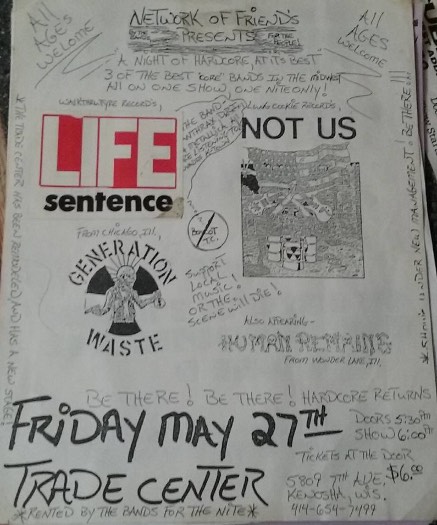 All
AGES
WELCOME
NETWORK OF FRIENDS
PRESENTS
FOR THE
PEOPLE!
All
AGES
WELCOME
A NIGHT OF HARDCORE AT ITS BEST
3 OF THE BEST 'CORE' BANDS IN THE MIDWEST
All ON ONE SHOW, ONE NITE ONLY!
RECORDS,
COOKIE RECORDS,
THE BAND
ANTHRAX
METALLICA
LISTENING TO
LIFE
sentence
NOT US
BOYCOTT
T.C.
FROM CHICAGO, Ill.,
GENERATION
WASTE
SUPPORT
LOCAL!
MUSIC!
OR THE
SCENE WILL DIE!
ALSO APPEARING-
HUMAN REMAINS
FROM WONDER LAKE, Ill.
*THE TRADE CENTER HAS BEEN AND HAS A NEW STAGE!
*SHOW IS UNDER NEW MANAGEMENT! BE THERE!!!
BE THERE! BE THERE! HARDCORE RETURNS
FRIDAY MAY 27TH
DOORS 5:30 PM
SHOW 6:00 PM
TICKETS AT THE DOOR
$6.00
TRADE CENTER
5809 7TH AVE.
KENOSHA, WS.
414-654-7499
*RENTED BY THE BANDS FOR THE NITE*